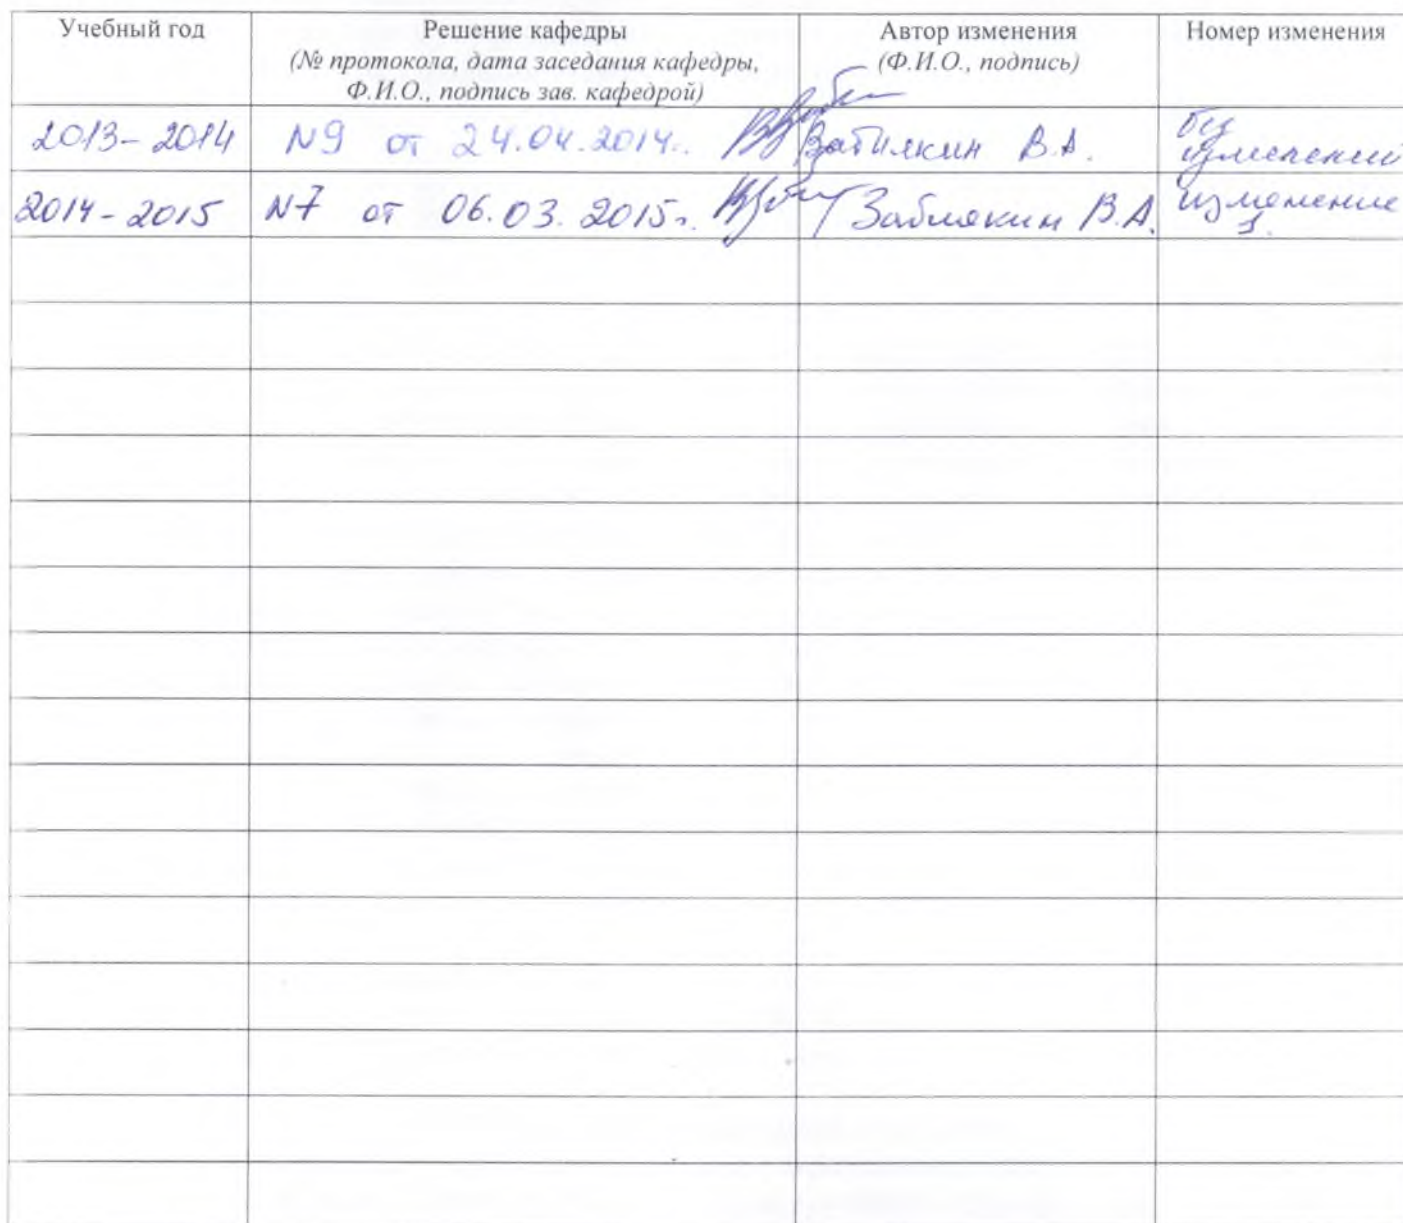 Учебный год
Решение кафедры
(№ протокола, дата заседания кафедры,
Ф.И.О., подпись зав. кафедрой)
Автор изменения
(Ф.И.О., подпись)
Номер изменения
2013-2014
N9 от 24.04.2014г.
В.А.
без
изменений
2014-2015
N7 от 06.03.2015г.
Заблякин В.А.
изменение
1.